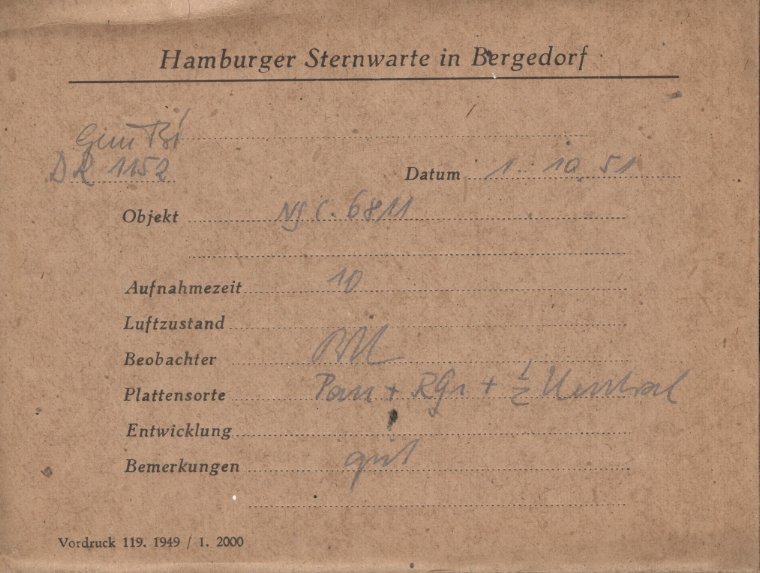 Hamburger Sternwarte in Bergedorf
DR 1152
Datum 1. 10. 51
Objekt NGC. 6811
Aufnahmezeit 10
Luftzustand
Beobachter
Plattensorte Pan + RG1 + ½ Neutral
Entwicklung
Bemerkungen gut
Vordruck 119. 1949 / 1. 2000